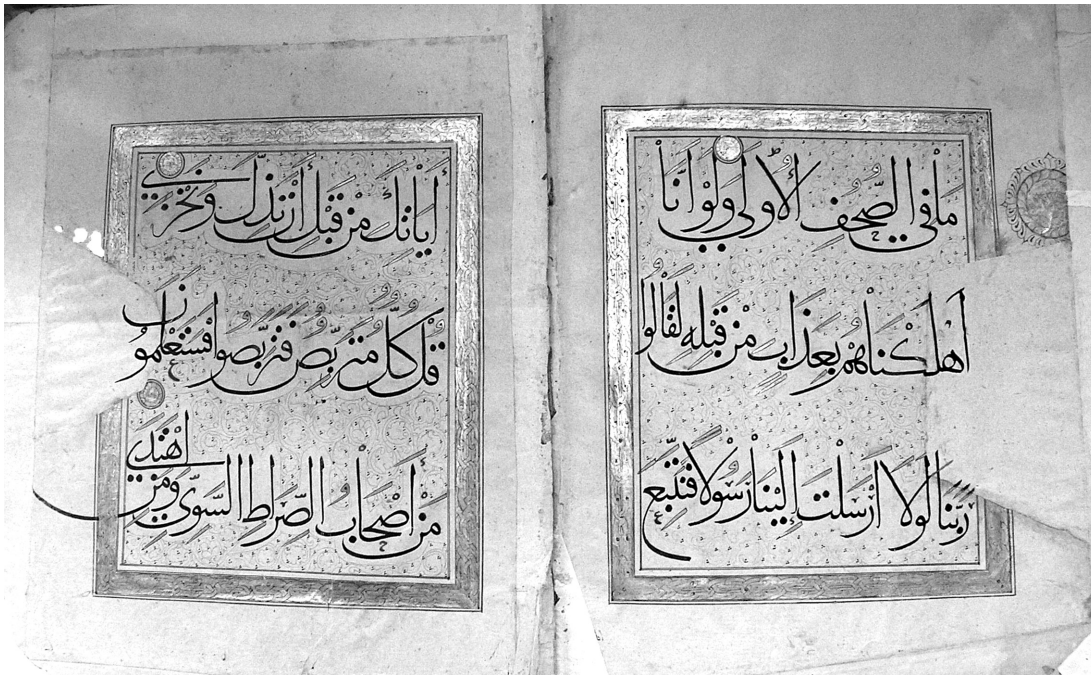 مَا فِي الصُّحُفِ الْأُولَى وَلَوْ أَنَّا
أَهْلَكْنَاهُمْ بِعَذَابٍ مِنْ قَبْلِهِ لَقَالُوا
رَبَّنَا لَوْلَا أَرْسَلْتَ إِلَيْنَا رَسُولًا فَنَتَّبِعَ
آيَاتِكَ مِنْ قَبْلِ أَنْ نَذِلَّ وَنَخْزَى
قُلْ كُلٌّ مُتَرَبِّصٌ فَتَرَبَّصُوا فَسَتَعْلَمُونَ
مَنْ أَصْحَابُ الصِّرَاطِ السَّوِيِّ وَمَنِ اهْتَدَى